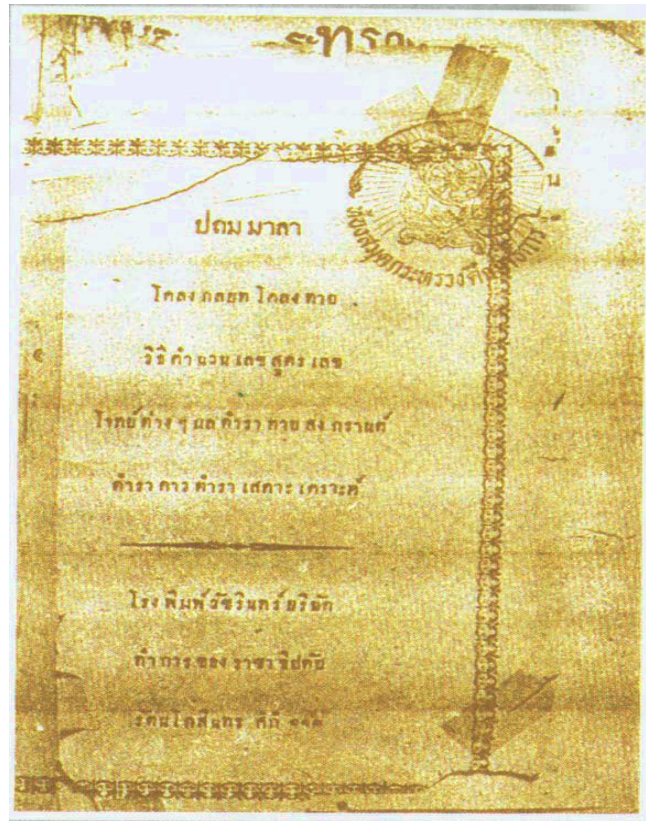 ปถม มาลา
โคลง กลยท โคลง ทาย
วิธี คำ นวน เลข สูตร เลข
โจทย์ ต่าง ๆ แล ตำรา ทาย สง กรานต์
ตำรา ดาว ตำรา เสดาะ เคราะห์
โรง พิมพ์ วัชรินทร์ บริษัท
ทำ การ ของ ราชา ธิปตัย
รัตนโกสินทร ศก
ห้องสมุดกระทรวงศึกษาธิการ